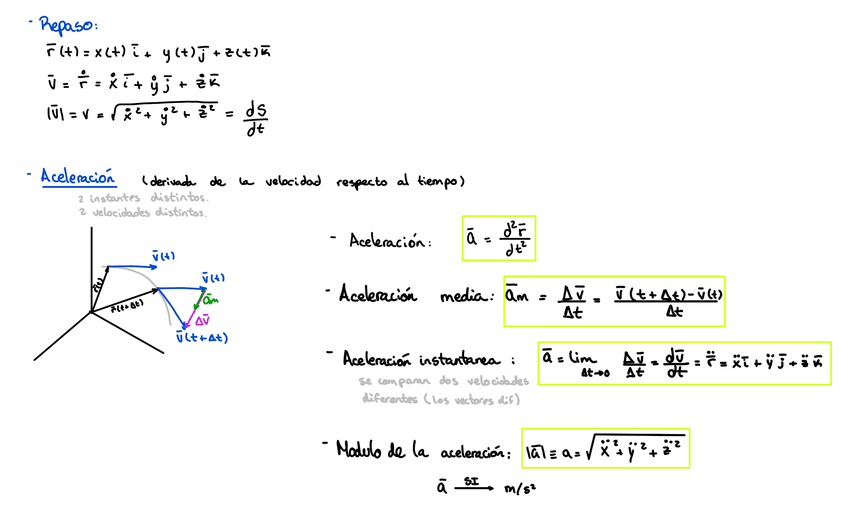 - Repaso:
r̅(t) = x(t) i̅ + y(t) j̅ + z(t) k̅
v̅ = ṙ̅ = ẋ i̅ + ẏ j̅ + ż k̅
|v̅| = v = √(ẋ² + ẏ² + ż²) = ds/dt
- Aceleración (derivada de la velocidad respecto al tiempo)
2 instantes distintos.
2 velocidades distintos.
v̅(t)
r̅(t)
v̅(t)
a̅m
r̅(t+Δt)
Δv̅
v̅(t+Δt)
- Aceleración: a̅ = d²r̅/dt²
- Aceleración media: a̅m = Δv̅/Δt = v̅(t+Δt)-v̅(t)/Δt
- Aceleración instantanea: a̅ = lim Δt→0 Δv̅/Δt = dv̅/dt = r̈̅ = ẍ i̅ + ÿ j̅ + z̈ k̅
se comparan dos velocidades
diferentes (los vectores dif)
- Modulo de la aceleración: |a̅| ≡ a = √(ẍ² + ÿ² + z̈²)
a̅ SI→ m/s²